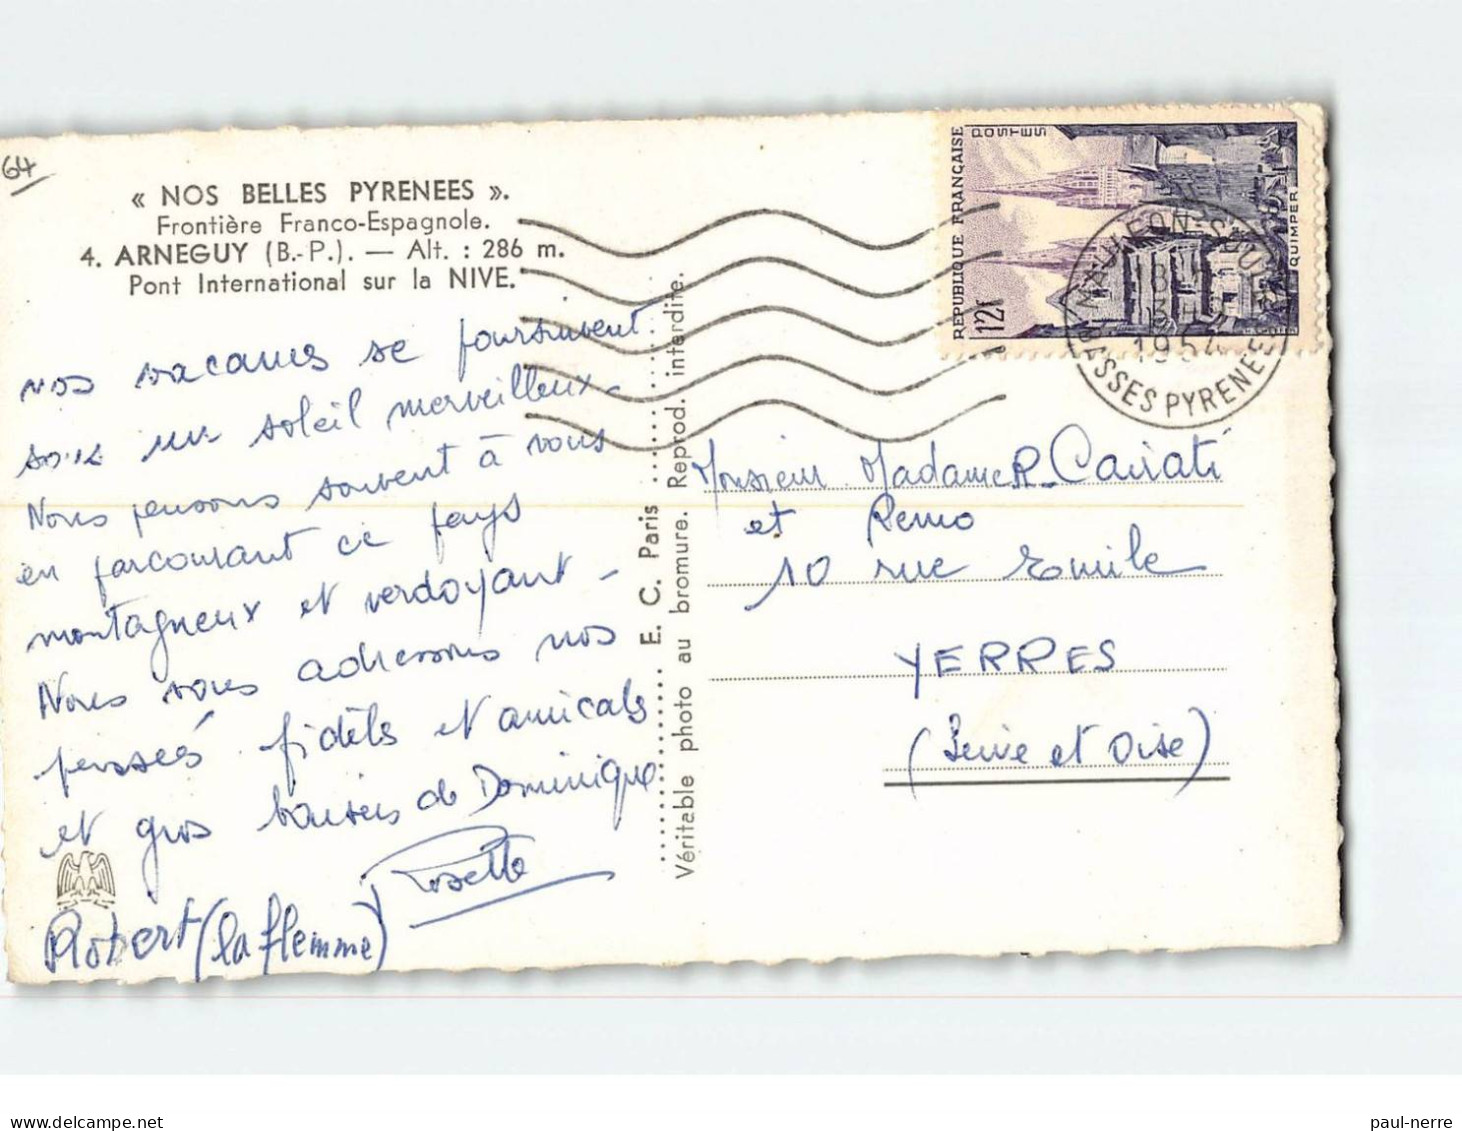 64
« NOS BELLES PYRENEES ».
Frontière Franco-Espagnole.
4. ARNEGUY (B.-P.). — Alt. : 286 m.
Pont International sur la NIVE.
nos vacances se poursuivent
sous un soleil merveilleux -
Nous pensons souvent à vous
en parcourant ce pays
montagneux et verdoyant -
Nous vous adressons nos
pensées fidèles et amicales
et gros baisers de Dominique
Rosette
Robert (la flemme)
E. C. Paris
Véritable photo au bromure. Reprod. interdite.
REPUBLIQUE FRANÇAISE
POSTES
12f
QUIMPER
MAULEON-SOULE
18 H
1954
BASSES PYRENEES
Monsieur Madame R. Cairati
et Remo
10 rue Emile
YERRES
(Seine et Oise)
delcampe.net
paul-nerre